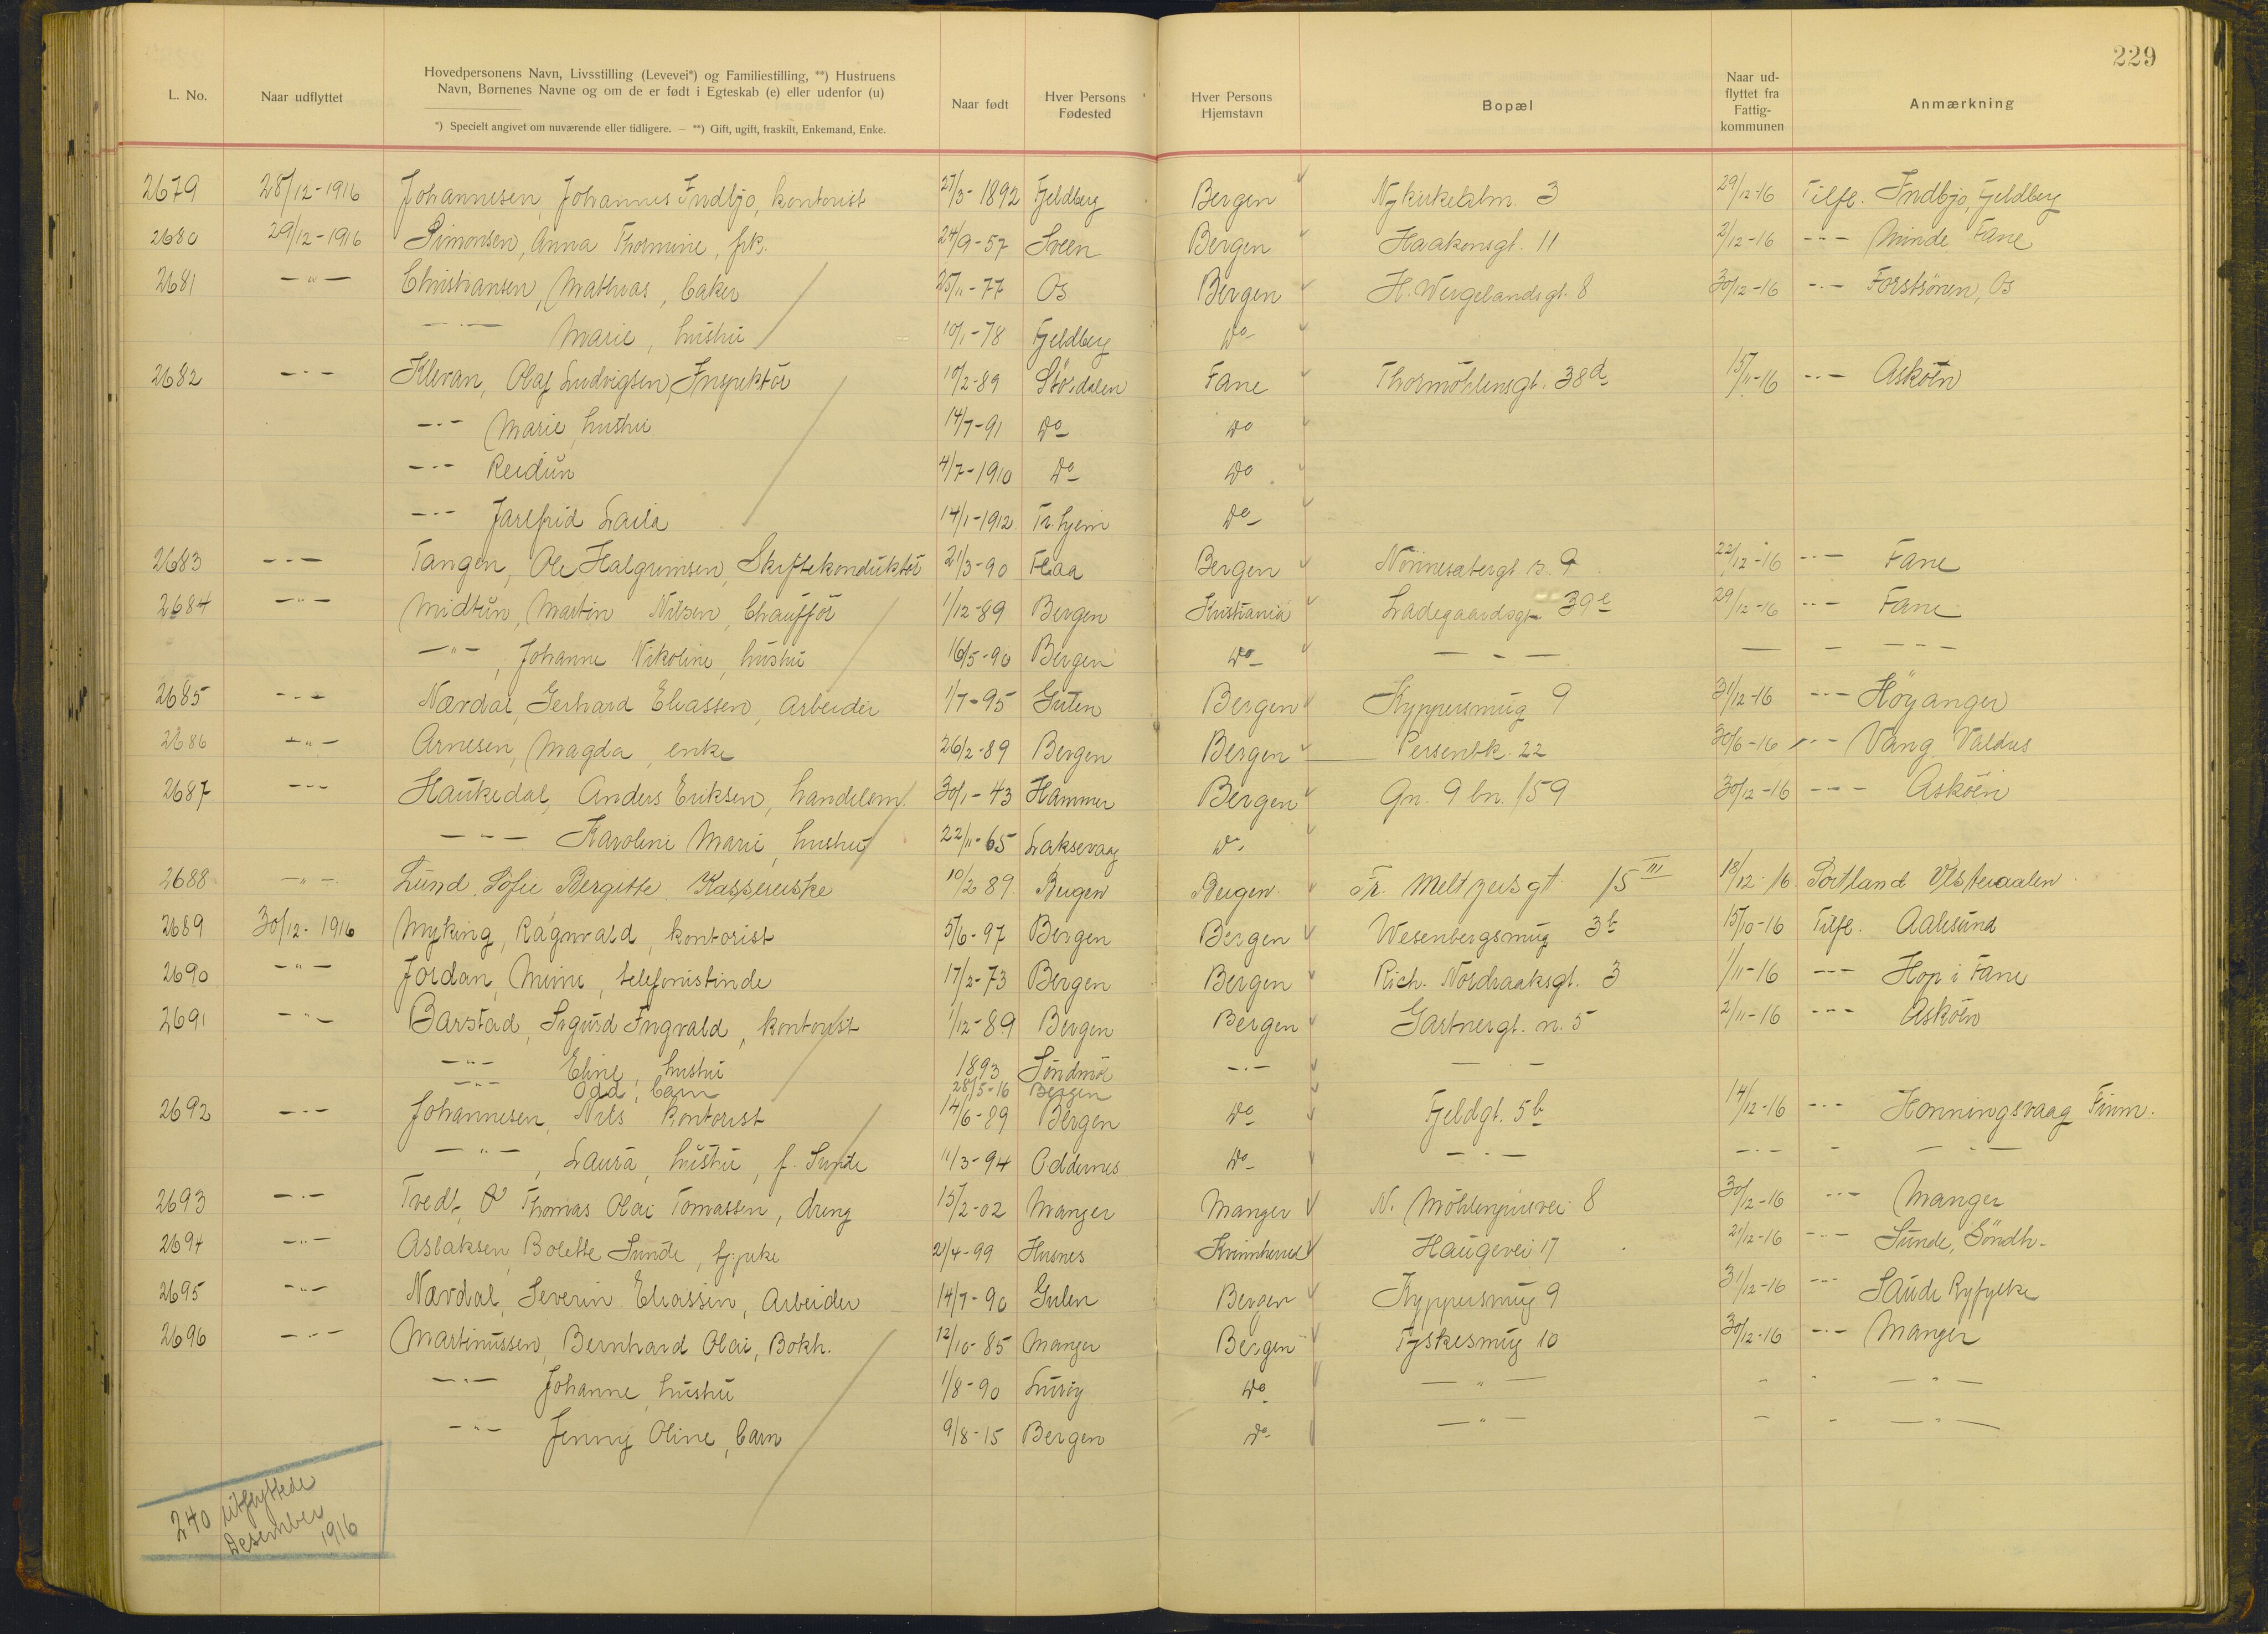 229
L. No.
Naar udflyttet
Hovedpersonens Navn, Livsstilling (Levevei*) og Familiestilling, **) Hustruens
Navn, Børnenes Navne og om de er født i Egteskab (e) eller udenfor (u)
*) Specielt angivet om nuværende eller tidligere. — **) Gift, ugift, fraskilt, Enkemand, Enke.
Naar født
Hver Persons
Fødested
Hver Persons
Hjemstavn
Bopæl
Naar ud-
flyttet fra
Fattig-
kommunen
Anmærkning
2679 28/12-1916 Johannesen, Johannes Indbjo, kontorist 27/3-1892 Fjeldberg Bergen Nykirkealm. 3 29/12-16 Tilfl. Indbjo, Fjeldberg
2680 29/12-1916 Simonsen, Anna Thormine, frk. 24/9-57 Sveen Bergen Haakonsgt. 11 2/12-16 -"- Minde Fane
2681 -"- Christiansen, Mathias, baker 25/11-77 Os Bergen H. Wergelandsgt. 8 30/12-16 -"- Os
-"- Marie, hustru 10/1-78 Fjeldberg Do
2682 -"- Klevan, Olaf Ludvigsen, Inspektør 10/2-89 Størdalen Fane Thormöhlensgt. 38d 15/11-16 -"- Askøen
-"- Marie, hustru 14/7-91 Do Do
-"- Reidun 4/7-1910 Do Do
-"- Jarlfrid Laila 14/1-1912 Tr.hjem Do
2683 -"- Tangen, Ole Halgrimsen, Skiftekonduktør 21/3-90 Flaa Bergen Nonnesætergt. n. 9 22/12-16 -"- Fane
2684 -"- Midtun, Martin Nilsen, Chauffør 1/12-89 Bergen Kristiania Ladegaardsgt. 39e 29/12-16 -"- Fane
-"-, Johanne Nikoline, hustru 16/5-90 Bergen Do — - — — - - - -
2685 -"- Nævdal, Gerhard Eliassen, Arbeider 1/7-95 Gulen Bergen Kyppersmug 9 31/12-16 -"- Höyanger
2686 -"- Arnesen, Magda, enke 26/2-89 Bergen Bergen Persenbk. 22 30/6-16 -"- Vang Valdres
2687 -"- Haukedal, Anders Eriksen, handelsm. 30/1-43 Hammer Bergen Gn. 9 bn. 159 30/12-16 -"- Askøen
-"- Karoline Marie, hustru 22/11-65 Laksevaag Do
2688 -"- Lund Sofie Bergitte Kassererske 10/2 89. Bergen Bergen Fr. Meltzersgt 15 III 18/12-16 Sortland Vesteraalen
2689 30/12-1916 Myking, Ragnvald, kontorist 5/6-97 Bergen Bergen Wesenbergsmug 3b 15/10-16 Tilfl. Aalesund
2690 -"- Jordan, Mimi, telefonistinde 17/2-73 Bergen Bergen Rich. Nordraaksgt. 3 1/11-16 -"- Hop i Fane
2691 -"- Barstad, Sigurd Ingvald, kontorist 1/12-89 Bergen Bergen Gartnergt. n. 5 2/11-16 -"- Askøen
-"- Eline, hustru 1893 Søndmør -"- — -
-"- Odd, barn 28/5-16 Bergen
2692 -"- Johannesen, Nils kontorist 14/6-89 Bergen Do Fjeldgt. 5b 14/12-16 -"- Honningsvaag Finm.
-"-, Laura, hustru, f. Sunde 11/3-94 Oddernes Do -"- -"- - -"-
2693 -"- Tvedt, Thomas Olai Tomassen, dreng 15/2-02 Manger Manger N. Möhlenprisvei 8 30/12-16 -"- Manger
2694 -"- Aslaksen Bolette Sunde, tj.pike 21/4-99 Husnes Kvinnherred Haugevei 17 21/12-16 -"- Sunde, Söndh-
2695 -"- Nævdal, Severin Eliassen, Arbeider 14/7-90 Gulen Bergen Kyppersmug 9 31/12-16 -"- Saude Ryfylke
2696 -"- Martinussen, Bernhard Olai, Bokh. 12/10-85 Manger Bergen Tyskesmug 10 30/12-16 -"- Manger
-"- Johanne, hustru 1/8-90 Lurøy Do -"- - " -"-
-"- Jenny Oline, barn 9/8-15 Bergen Do -"- - - -"-
240 utflyttede
Desember
1916